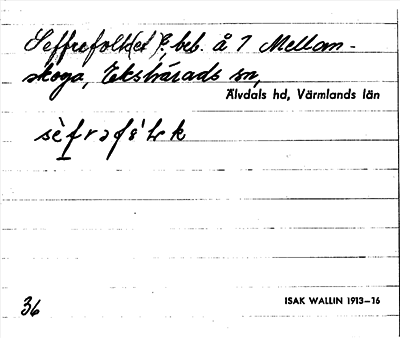 Seffrefolk(et), beb. å 1 Mellan-
skoga, Ekshärads sn,
Älvdals hd, Värmlands län
sèfrəfól k
36
ISAK WALLIN 1913–16